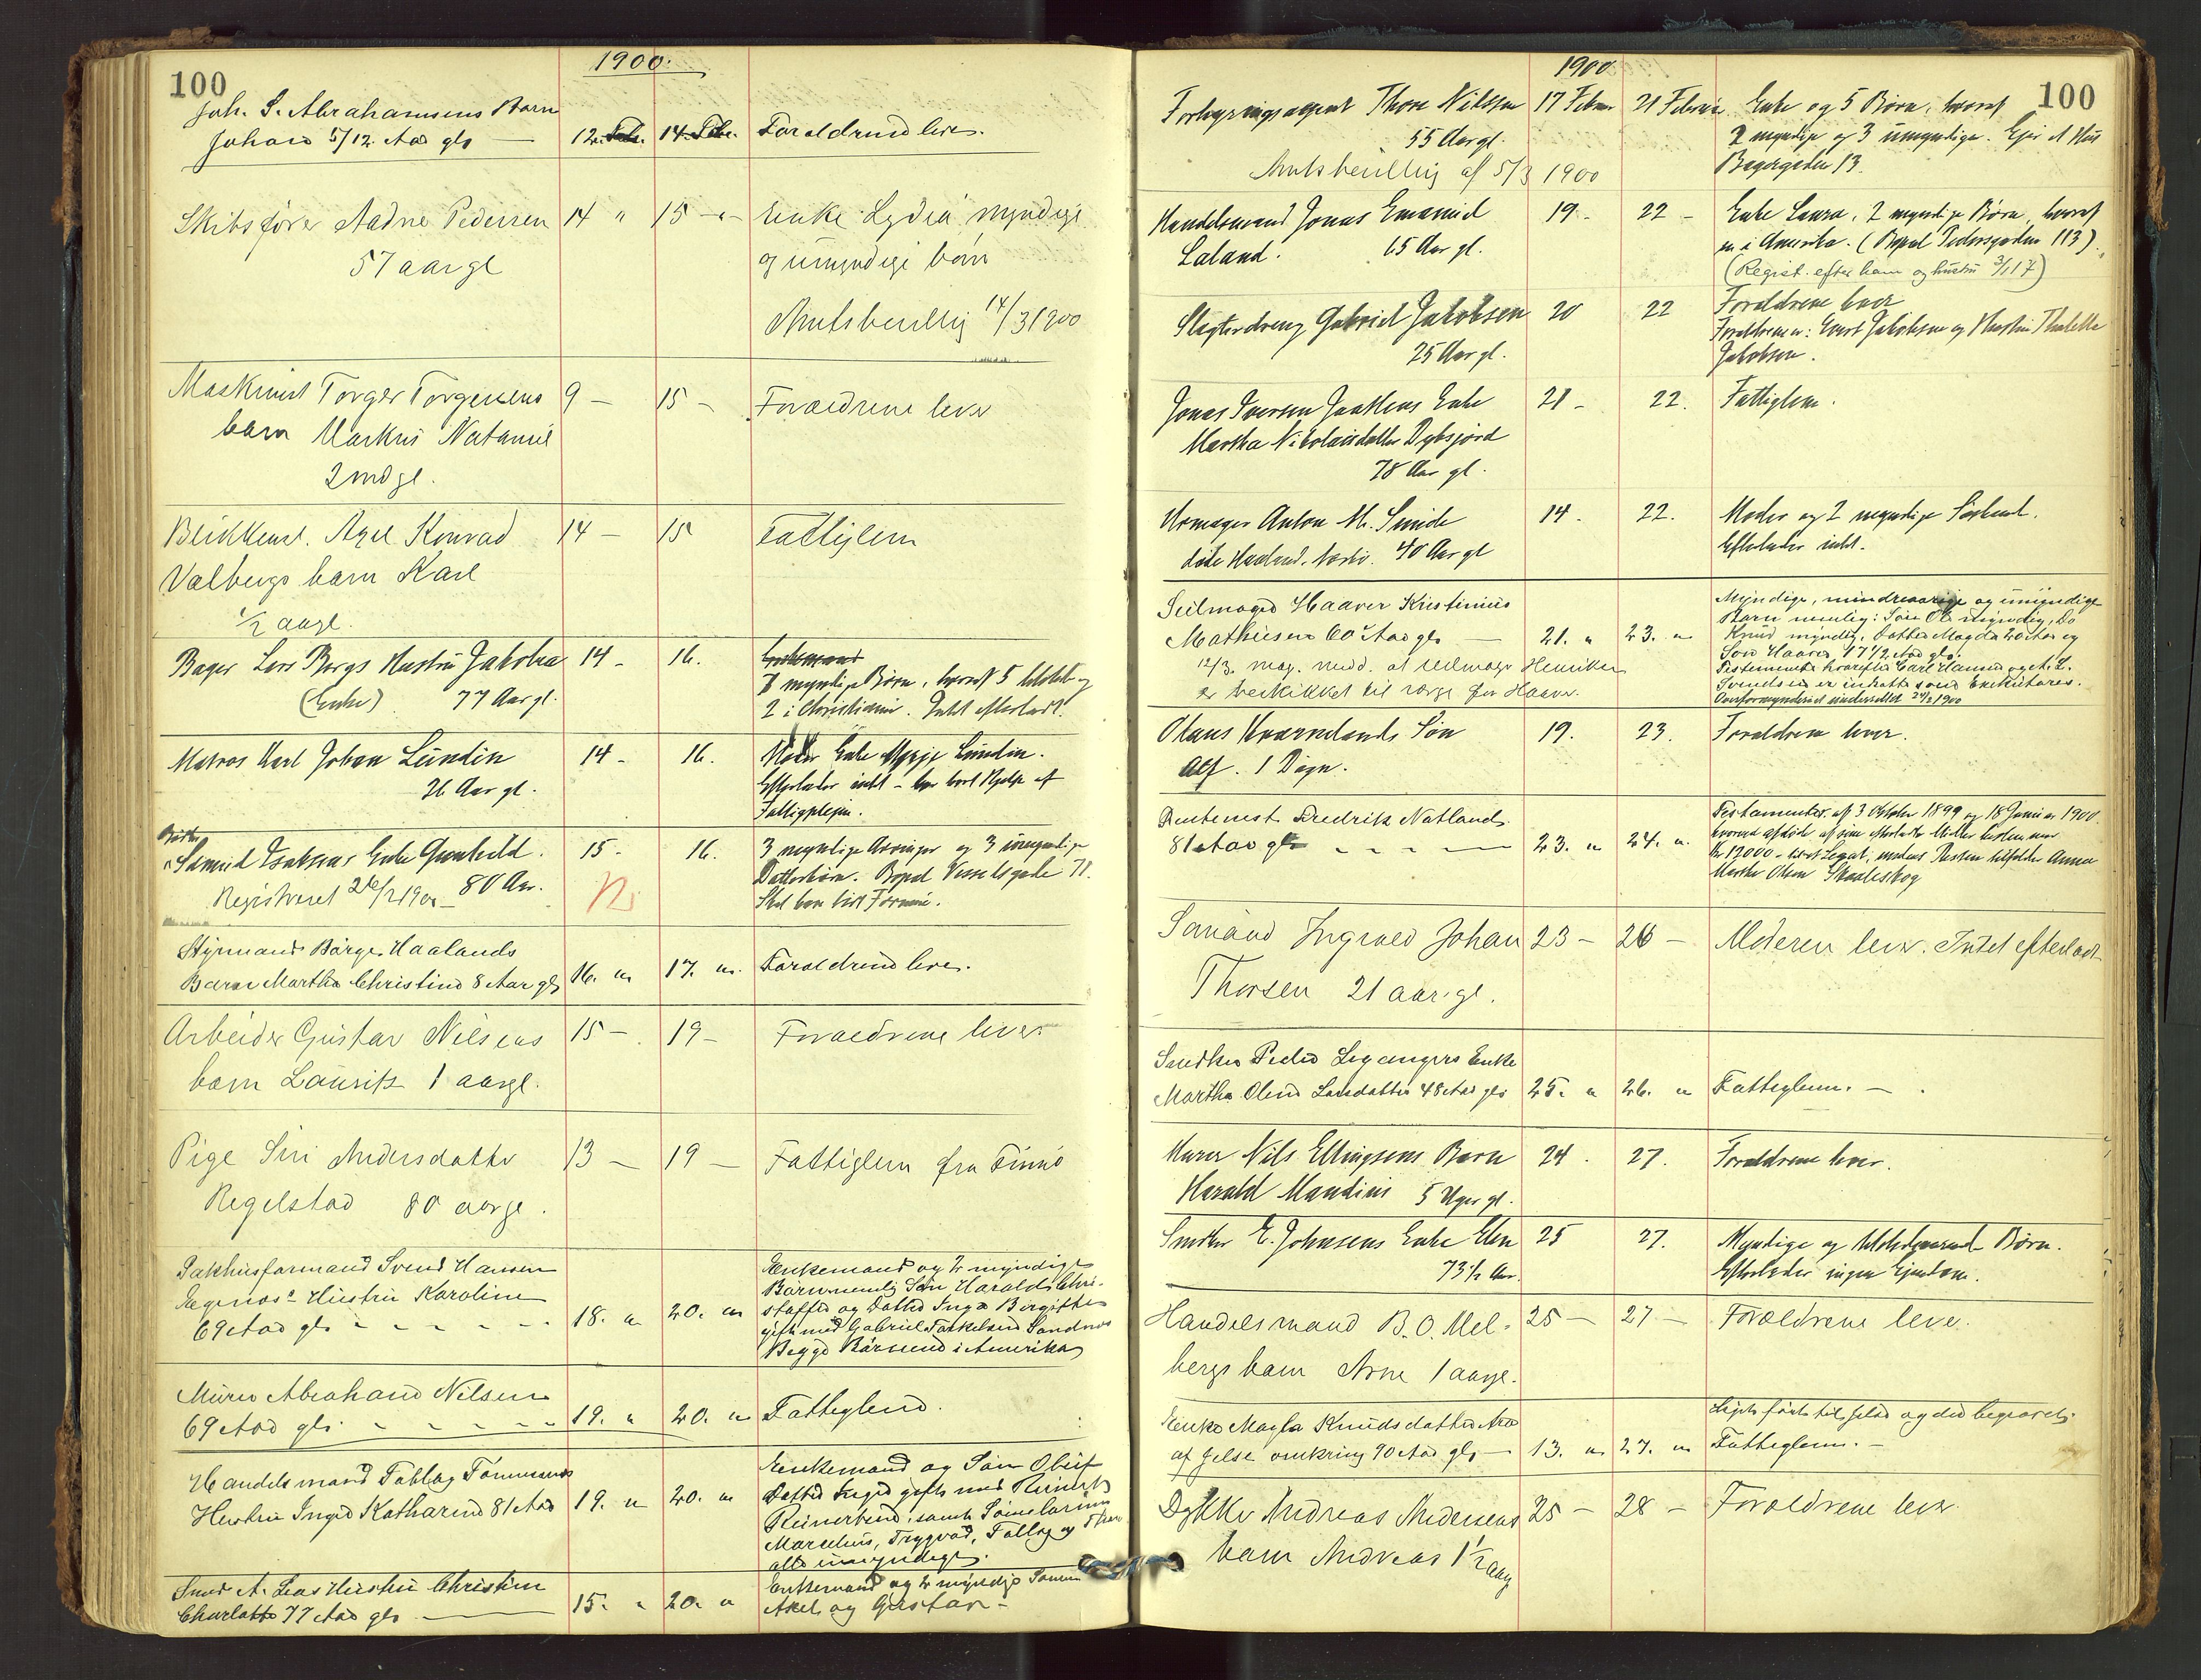 100
1900.
Joh. S. Abrahamsens Barn
Johan 5/12 Aar gl. — 12. Febr. 14. Febr. Forældrene lever.
Skibsfører Aadne Pedersen 14 " 15 — " — Enke Lydia, myndige
57 aar gl og umyndige børn
Amtsbevillig 14/3 1900
Maskinist Torger Torgersens 9 — 15 — Forældrene lever
barn Markus Nataniel
2 md gl.
Blikkensl. Axel Konrad 14 — 15 Fattiglem
Valbergs barn Karl
1/2 aar gl.
Bager Lars Bergs Hustru Jakobea 14 - 16.
(Enke) 77 Aar gl. 7 myndige Børn, hvoraf 5 udenl. og
2 i Christiania. Intet efterladt.
Matros Karl Johan Lundin 14 - 16. Moder Enke Lundin.
26 Aar gl. Efterlader intet - har havt Hjælp af
Fattigplejen.
Samuel Isaksens Enke Gunhild. 15 - 16. 3 myndige Arvinger og 3 umyndige
Registreret 26/2 1900 - 80 Aar. Datterbørn. Bopæl Vesselsgade 71.
Skal have lidt Formue.
Styrmand Børge Haalands
Barn Martha Christine 8 Aar gl. 16. " 17. " Forældrene lever.
Arbeider Gustav Nilsens 15 — 19 - Forældrene lever
barn Laurits 1 aar gl.
Pige Siri Andersdatter 13 — 19 — Fattiglem fra Finnø
Regelstad 80 aar gl.
Pakhusformand Svend Hansen Enkemand og 2 myndige
Hustru Karoline Børn nemlig Søn Harald Chri-
69 Aar gl. 18. " 20. " stoffer og Datter Inga Birgitte
gift med Gabriel Torkelsen Sandnes
Begge Børnene i Amerika
Murer Abraham Nilsen
69 Aar gl. 19. " 20. " Fattiglem.
Handelsmand Tallag Tønnesens Enkemand og Søn Oluf
Hustru Inger Katharine 81 Aar 19. " 20. " Datter Inger gift med Reinert
Reinertsen, samt Sønnerne
Marselius, Trygvad, Tallag og
alle umyndige.
Smed A. Leas Hustru Christine Enkemand og 2 myndige Sønner
Charlotte 77 Aar gl. 15. " 20. " Aksel og Gustav -
1900
100
Forhyringsagent Thore Nilssen 17 Febr 21 Februar Enke og 5 Børn, hvoraf
55 Aar gl. 2 myndige og 3 umyndige. Ejer et Hus
Amtsbevillig af 5/3 1900 Bagergaden 13.
Handelsmand Jonas Emanuel 19 - 22 - Enke Laura, 2 myndige Børn, hvoraf
Laland. 65 Aar gl. en i Amerika. (Bopæl Pedersgaden 113).
(Regist. efter ham og hustru 3/1 17)
Slagterdreng Gabriel Jakobsen 20 22 Forældrene lever
25 Aar gl. Forældrene er: Jakobsen og Hustru Thalette
Jakobsen.
Jonas Iversen Enke 21 - 22. Fattiglem.
Martha Nikolaisdatter Dybsjord
78 Aar gl.
Urmager Anton M. Smide 14. 22. Moder og 2 myndige Søskend.
døde Haaland. 40 Aar gl Efterlader intet.
Seilmager Haaver Kristinius Myndige, mindreaarige og umyndige
Mathiesen 60 Aar gl. — 21. " 23. " Børn nemlig: Søn Ole myndig, Do
12/3. mag. medd. at seilmager Henriksen Knud myndig, Datter Magda 20 Aar og
er beskikket til værge for Haaver. Søn Haaver 17 1/2 Aar gl.
Testamente hvorefter Carl Hansen og A. L.
Svendsen er indsatte som Exekutores.
Overformynderiet underrettet 24/2 1900
Olaus Kværnelands Søn 19. 23. Forældrene lever.
Alf. 1 Døgn.
Rentenist Fredrik Natland Testamenter af 3 Oktober 1899 og 18 Januar 1900
81 Aar gl. 23. " 24. "
Kr 12000 - Legat, medens Resten tilfalder Anna
Marthe Olsen Skadeskog
Sømand Ingvald Johan 23 — 26 — Moderen lever. Intet efterladt
Thorsen 21 aar gl.
Snedker Peder Leganger Enke
Martha Oline Larsdatter 48 Aar gl. 25. " 26. " Fattiglem. —
Murer Nils Ellingsens Barn 24. 27. Forældrene lever.
Harald Mandius 5 Uger gl.
Snedker E. Johnsens Enke Elen 25 27. Myndige og Børn.
73 1/2 Aar. Efterlader ingen Ejendom.
Handelsmand B. O. Mel- 25 — 27 — Forældrene lever.
bergs barn Arne 1 aar gl.
Enke Magla Knudsdatter Liget ført til Jelse og der begravet.
af Jelse omkring 70 Aar gl. — 13. " 27. " Fattiglem. —
Dykker Andreas Andersens 25 — 28 — Forældrene lever
barn Andreas 1 1/2 aar